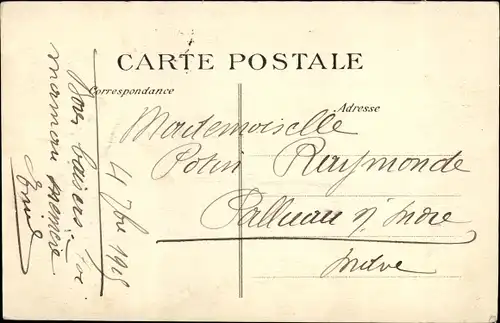 CARTE POSTALE
Correspondance
Adresse
Mademoiselle
Potin Raymonde
Palluau s/ Indre
Indre
4 7bre 1915
Bons baisers
maman